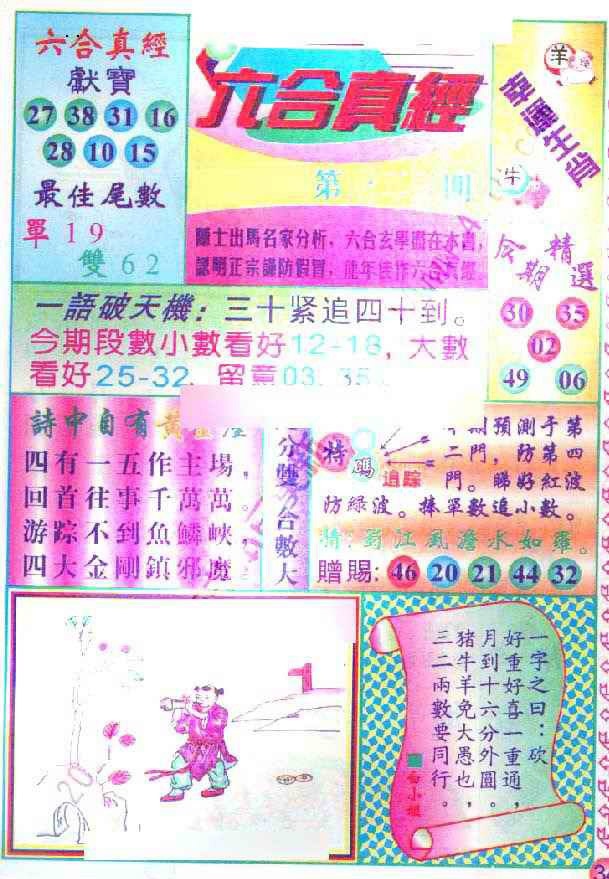 六合真經
獻寶
27 38 31 16
28 10 15
最佳尾數
單19
雙62
六合真經
第
期
隱士出馬名家分析,六合玄學盡在本書,
認明正宗謹防假冒,龍年佳作六合真經
羊
幸運生肖
牛
今期精選
30 35
02
49 06
一語破天機:三十紧追四十到。
今期段數小數看好12-18,大數
看好25-32,留意03.35
詩中自有黃金屋
四有一五作主場,
回首往事千萬萬。
游踪不到魚鱗峽,
四大金剛鎮邪魔。
分雙合數大
特碼
追踪
期預測于第
二門,防第四
門。睇好紅波
防綠波。捧單數追小數。
特:蜀江風澹水如羅。
贈賜:46 20 21 44 32
一字之曰:砍
好重好喜一重通,
月到十六分外圓,
猪牛羊兔大愚也,
三二兩數要同行。
白小姐
3